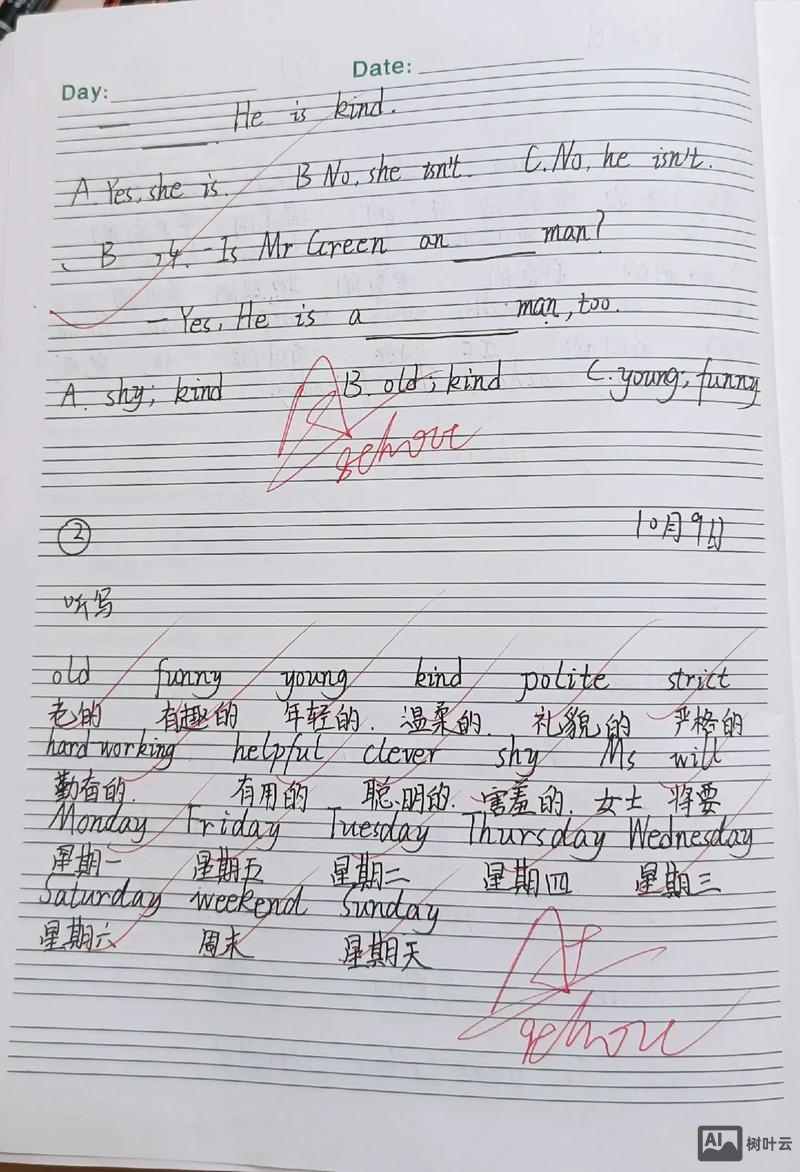 Day: Date:
He is kind.
A. Yes, she is. B No, she isn't. C. No, he isn't.
B 24. -Is Mr Green an ____ man?
- Yes, He is a ____ man, too.
A. shy; kind B. old; kind C. young; funny
A
② 10月9日
听写
old funny young kind polite strict
老的 有趣的 年轻的. 温柔的. 礼貌的 严格的
hard working helpful clever shy Ms will
勤奋的. 有用的 聪明的. 害羞的. 女士 将要
Monday Friday Tuesday Thursday Wednesday
星期一 星期五 星期二 星期四 星期三
Saturday weekend Sunday
星期六 周末 星期天
A+
AI 树叶云